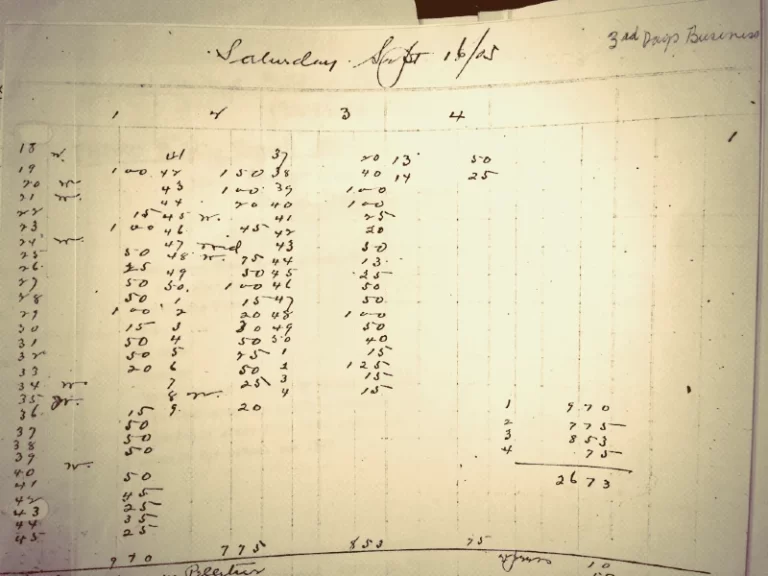 3rd Days Business
Saturday Sept 16/05
1 2 3 4
18 n. 41 37 20 13 50
19 100 42 150 38 40 14 25
20 n. 43 100 39 100
21 n. 44 20 40 100
22 15 45 n. 41 25
23 100 46 45 42 20
24 n. 47 43 50
25 50 48 n. 75 44 13
26 25 49 50 45 25
27 50 50 100 46 50
28 50 1 15 47 50
29 100 2 20 48 100
30 15 3 30 49 50
31 50 4 50 50 40
32 50 5 25 1 15
33 20 6 50 2 125
34 n. 7 25 3 15
35 n. 8 n. 4 15
36 15 9 20 1 970
37 50 2 775
38 50 3 853
39 50 4 75
40 n. 2673
41 50
42 45
43 25
44 35
45 25
970 775 853 75
10